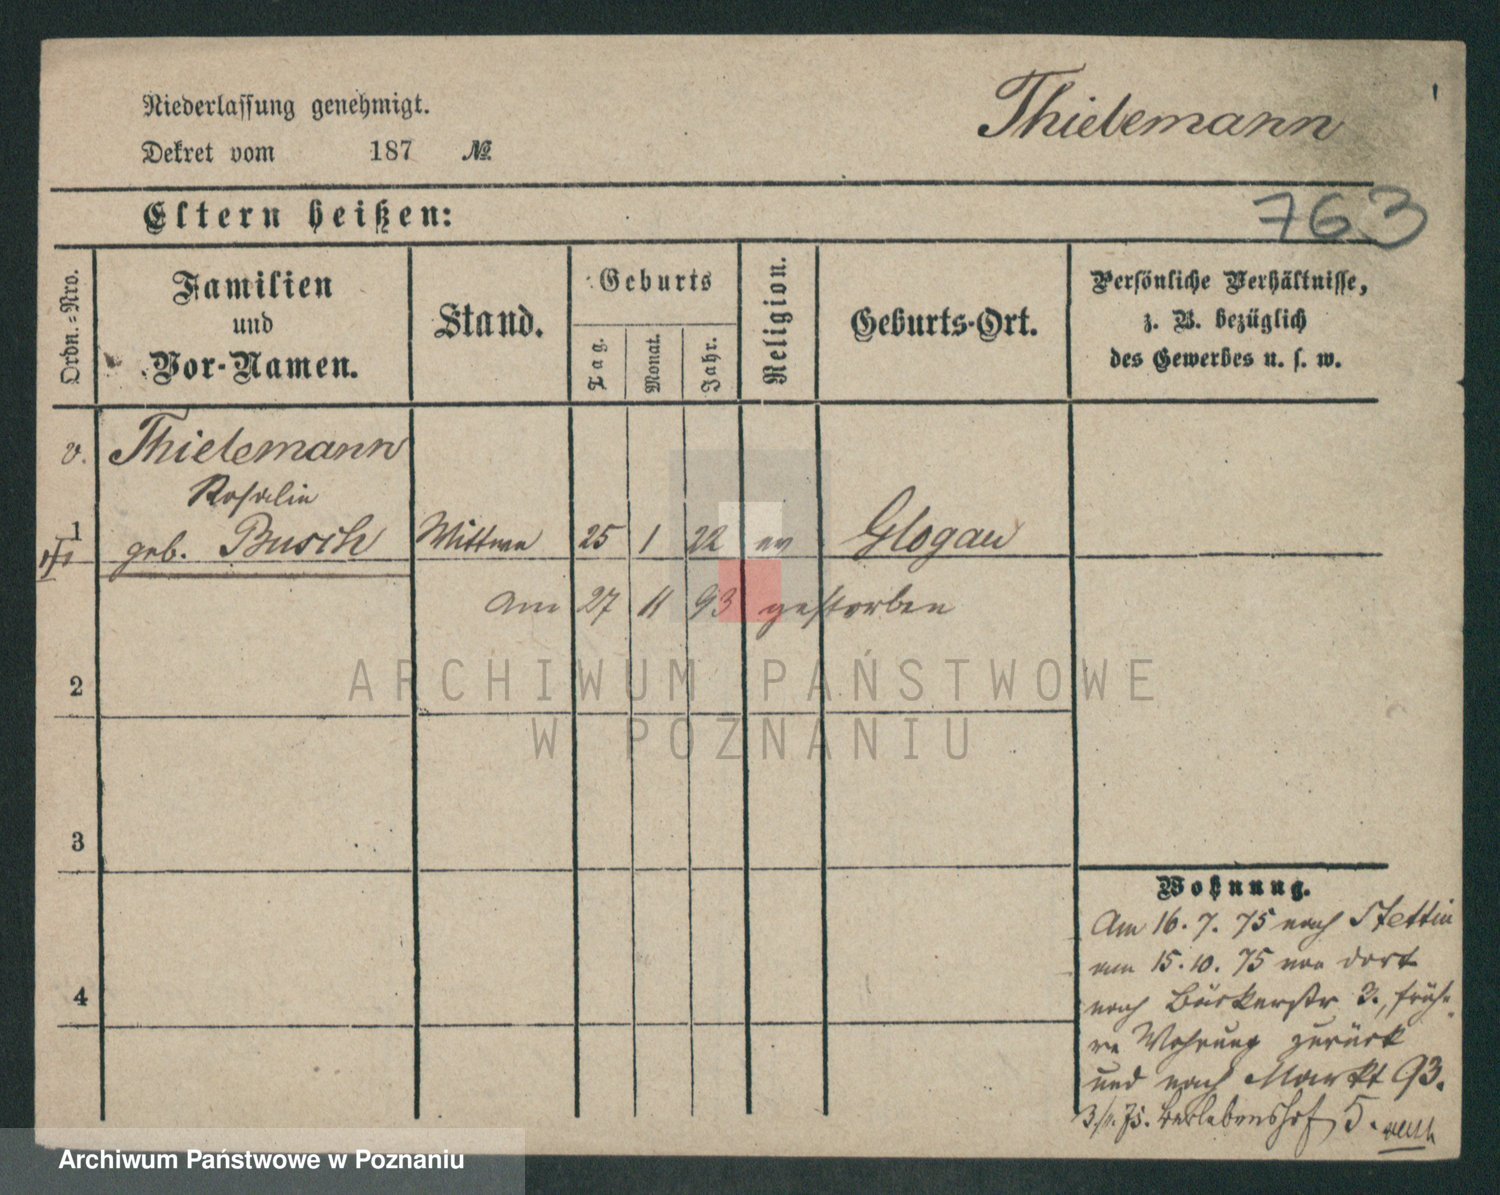 Niederlassung genehmigt.
Thielemann
Dekret vom 187 №.
763
Eltern heißen:
Ordn.-Nro.
Familien
und
Vor-Namen.
Stand.
Geburts
Tag.
Monat.
Jahr.
Religion.
Geburts-Ort.
Persönliche Verhältnisse,
z. B. bezüglich
des Gewerbes u. s. w.
v. Thielemann
Rosalie
1 geb. Busch Wittwe 25 1 22 ev Glogau
Am 27 11 93 gestorben
2
3
4
Wohnung.
Am 16. 7. 75 nach Stettin
am 15. 10. 75 von dort
nach Bäckerstr 2., frühe-
re Wohnung zurück
und nach Markt 93.
75. 5.
ARCHIWUM PAŃSTWOWE
W POZNANIU
Archiwum Państwowe w Poznaniu